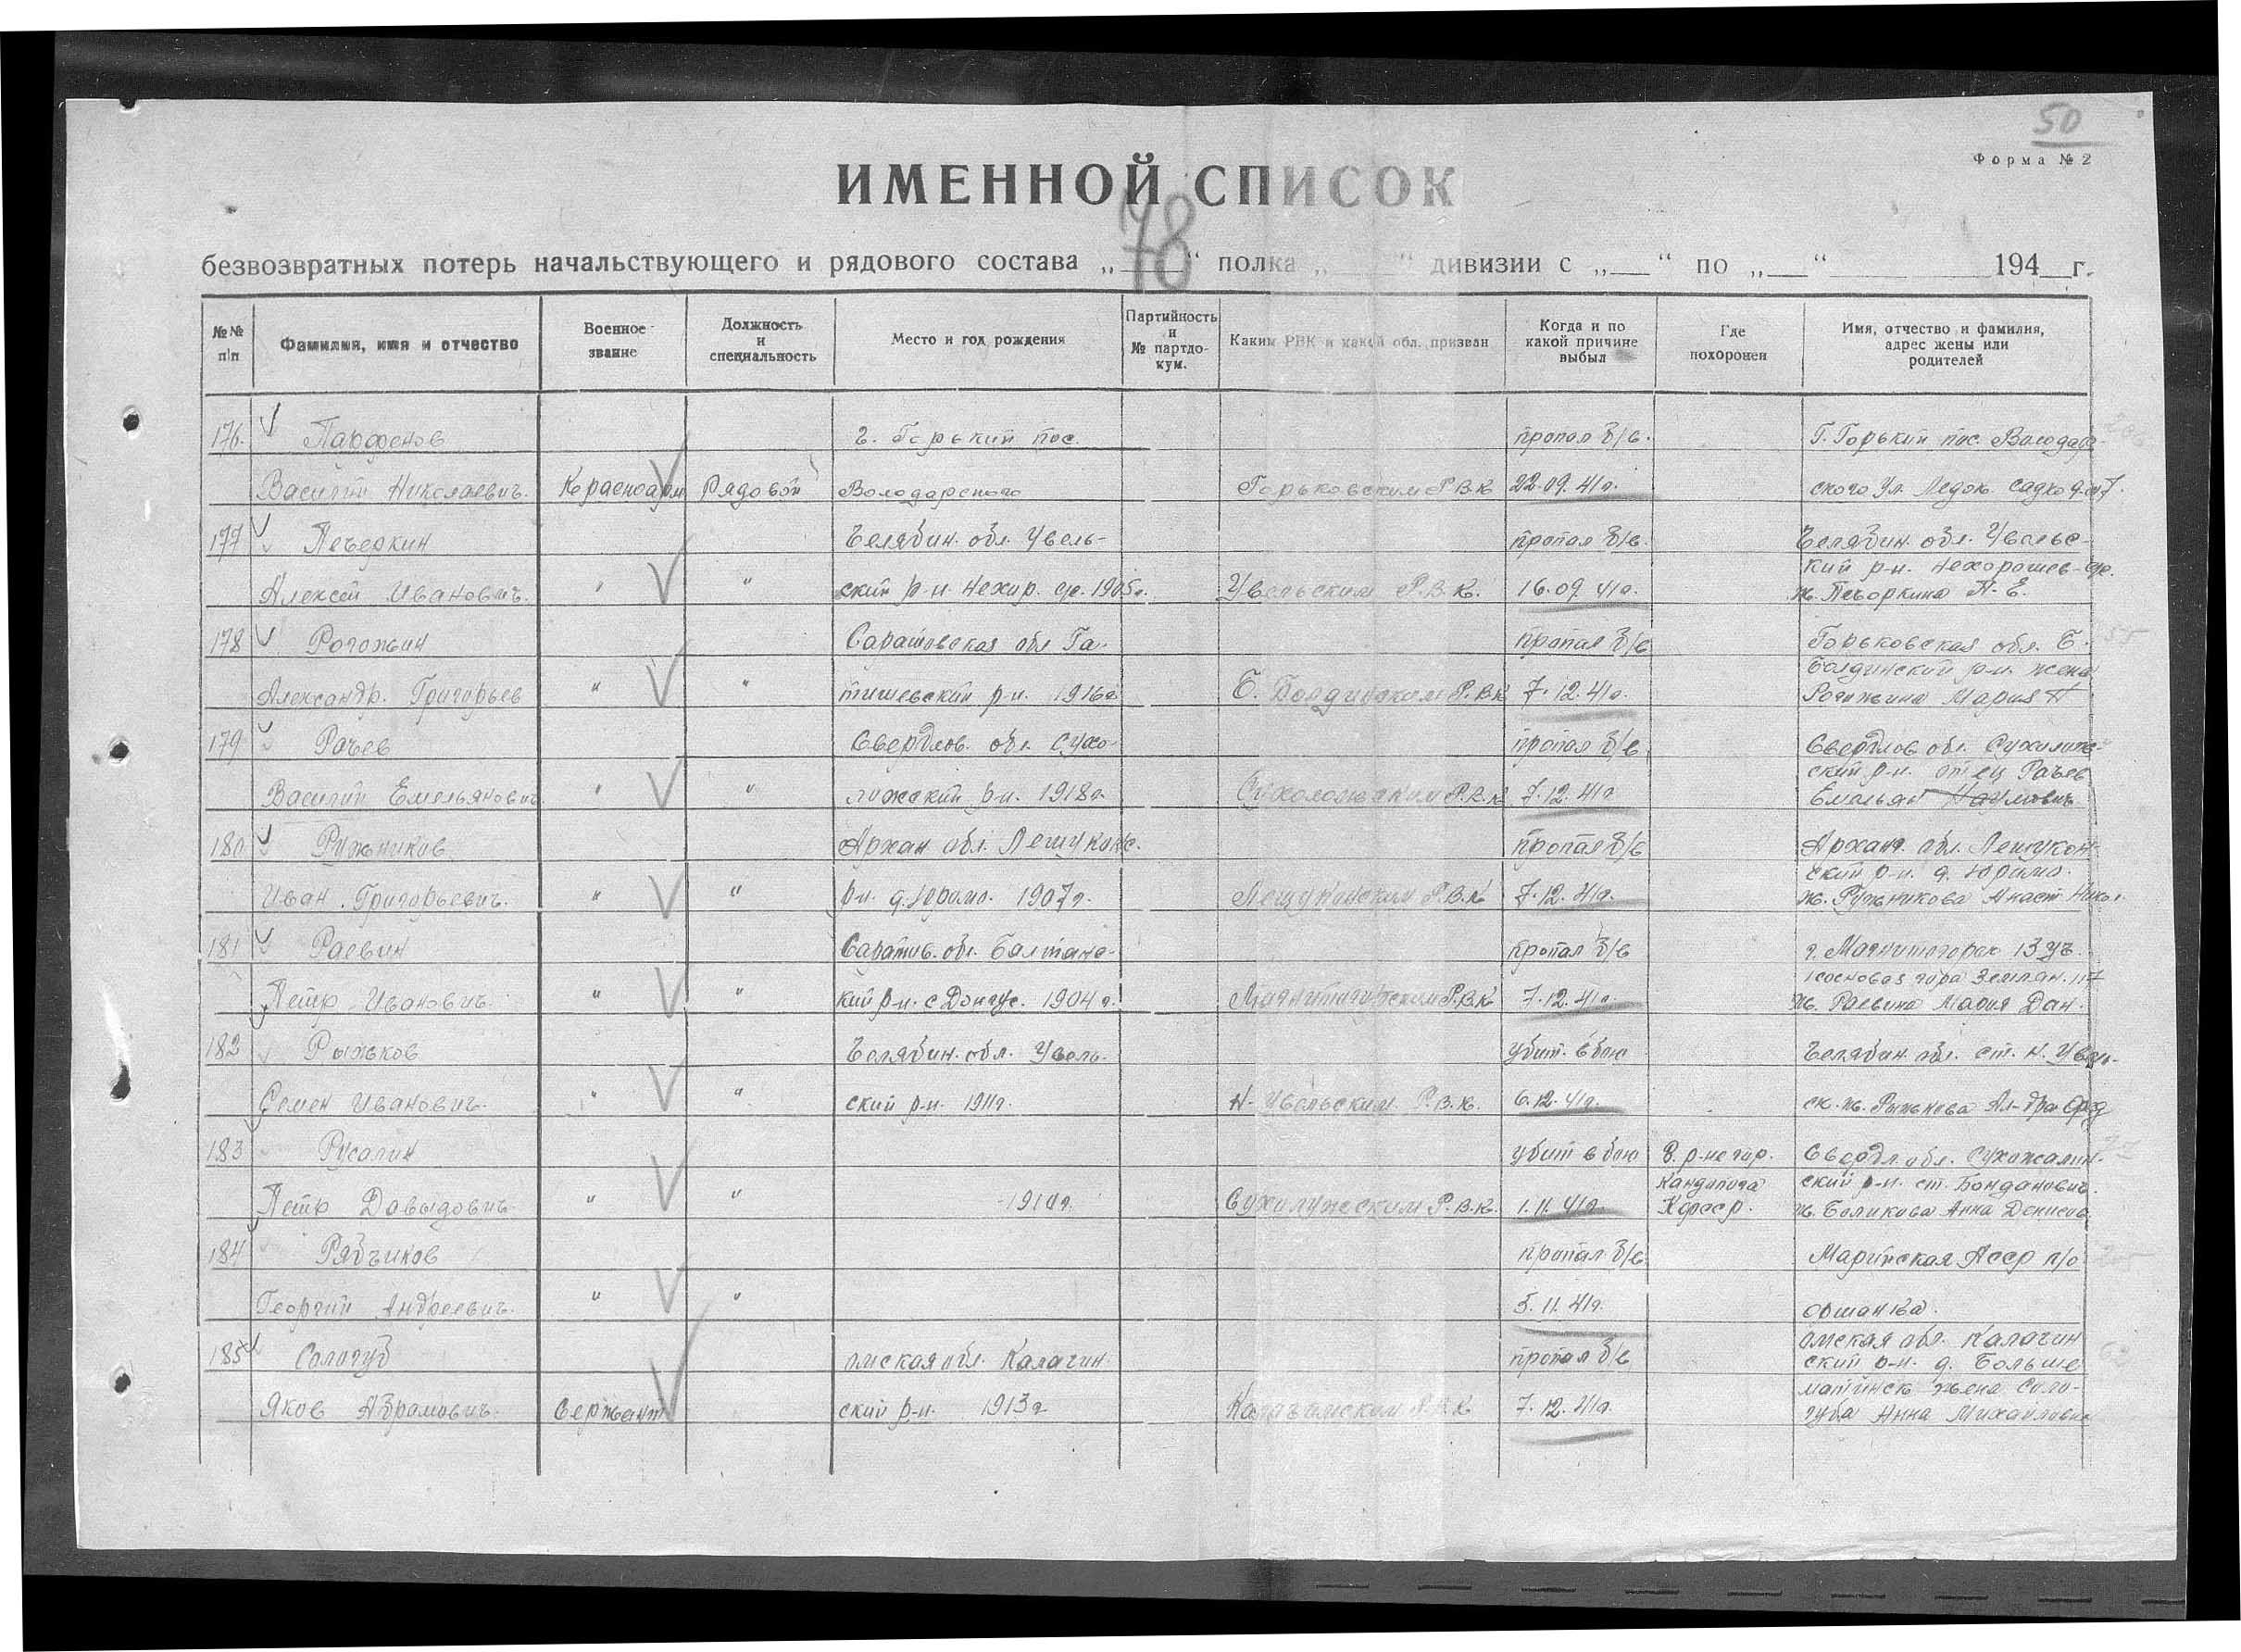 50
Форма № 2
ИМЕННОЙ СПИСОК
78
безвозвратных потерь начальствующего и рядового состава „ “ полка „ “ дивизии с „ “ по „ “ 194 г.
№№ п/п Фамилия, имя и отчество Военное звание Должность и специальность Место и год рождения Партийность и № партдокум. Каким РВК и какой обл. призван Когда и по какой причине выбыл Где похоронен Имя, отчество и фамилия, адрес жены или родителей
176. Парфенов г. Горький пос. пропал б/в. Г. Горький пос. Володар-
Василий Николаевич. Красноарм Рядовой Володарского Горьковским Р.В.К 22.09.41г. ского ул.
177 Печеркин Челябин. обл. Увель- пропал б/в. Челябин. обл. Увельс-
кий р-н.
Алексей Иванович. " " ский р-н Нехор. 1905г. Увельским Р.В.К. 16.09.41г. ж. Печоркина П. Е.
178 Рогожин Саратовская обл Га- пропал б/в Горьковская обл. Б.
Болдинский р-н. жена
Александр. Григорьев " " тишевский р-н. 1916г Б. Болдинским Р.В.К 7.12.41г. Рогожина Мария
179 Рачев Свердлов. обл. Сухо- пропал б/в Свердлов обл. Сухолож-
ский р-н. отец Рачев
Василий Емельянович. " " ложский р-н. 1918г. Сухоложским Р.В.К 7.12.41г Емельян Наумович
180 Ружников Архан обл. Лешуконс. пропал б/в Арханг. обл. Лешукон-
ский р-н. д. Юрома.
Иван Григорьевич. " " рн. д. Юрома. 1907г. Лешуконским Р.В.К 7.12.41г. ж. Ружникова Анаст. Никол.
181 Раевин Саратов. обл. Балтайс- пропал б/в г. Магнитогорск 13 уч.
сосновая гора Землян. 117
Петр Иванович. " " кий р-н. с Донгуз. 1904г. Магнитогорским Р.В.К 7.12.41г. ж. Раевина Мария Дан.
182 Рыжков Челябин. обл. Увель- убит. в бою Челябин. обл. ст. Н. Увел-
Семен Иванович. " " ский р-н. 1911г. Н-Увельским Р.В.К. 6.12.41г. ск. ж. Рыжкова Ал-дра
183 Русалин убит в бою В. р-не гор. Свердл. обл.
Кандопога ский р-н. ст.
Петр Давыдович " " 1910г. Р.В.К. 1.11.41г. Кфсср. ж. Анна Денисов.
184 Рябчиков пропал б/в Марийская Асср п/о
Георгий Андреевич. " " 5.11.41г. оршанка.
185 Сологуб омская обл. Калачин пропал б/в омская обл. Калачин
ский р-н. д. Больше
митинск жена Соло-
Яков Абрамович. Сержант ский р-н. 1913г Р.В.К 7.12.41г. губа Анна Михайловна